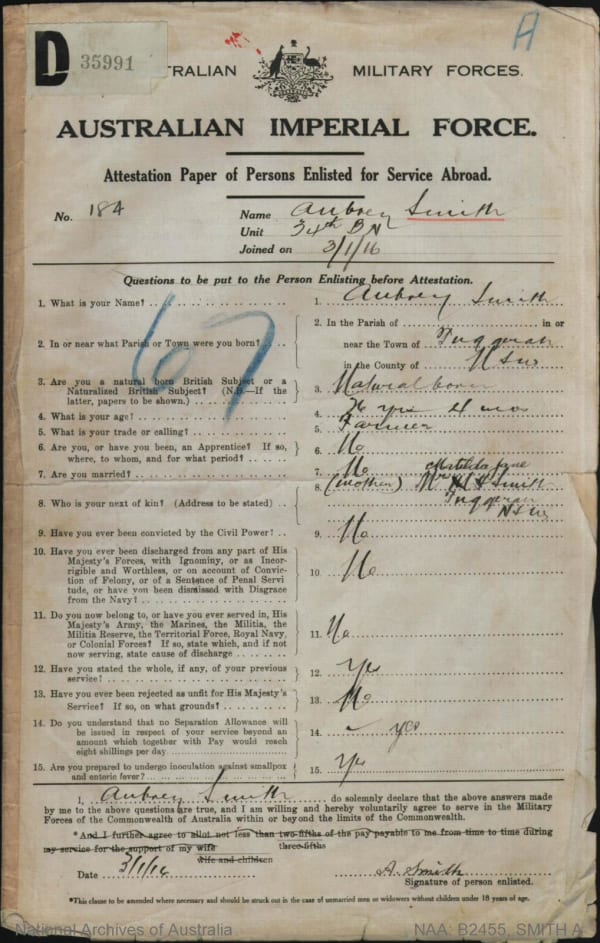 D 35991
A
TRALIAN MILITARY FORCES.
AUSTRALIAN IMPERIAL FORCE.
Attestation Paper of Persons Enlisted for Service Abroad.
No. 184
Name Aubrey Smith
Unit 34th BN
Joined on 3/1/16
Questions to be put to the Person Enlisting before Attestation.
67
1. What is your Name? 1. Aubrey Smith
2. In or near what Parish or Town were you born? 2. In the Parish of in or
near the Town of Tuggerah
in the County of NSW
3. Are you a natural born British Subject or a
Naturalized British Subject? (N.B.—If the
latter, papers to be shown.) 3. Natural born
4. What is your age? 4. yrs 4 mos
5. What is your trade or calling? 5. Farmer
6. Are you, or have you been, an Apprentice? If so,
where, to whom, and for what period? 6. No
7. Are you married? 7. No
8. Who is your next of kin? (Address to be stated) 8. (mother) Mrs Matilda Jane Smith
Tuggerah
NSW
9. Have you ever been convicted by the Civil Power? 9. No
10. Have you ever been discharged from any part of His
Majesty's Forces, with Ignominy, or as Incor-
rigible and Worthless, or on account of Convic-
tion of Felony, or of a Sentence of Penal Servi
tude, or have you been dismissed with Disgrace
from the Navy? 10. No
11. Do you now belong to, or have you ever served in, His
Majesty's Army, the Marines, the Militia, the
Militia Reserve, the Territorial Force, Royal Navy,
or Colonial Forces? If so, state which, and if not
now serving, state cause of discharge 11. No
12. Have you stated the whole, if any, of your previous
service? 12. Yes
13. Have you ever been rejected as unfit for His Majesty's
Service? If so, on what grounds? 13. No
14. Do you understand that no Separation Allowance will
be issued in respect of your service beyond an
amount which together with Pay would reach
eight shillings per day 14. yes
15. Are you prepared to undergo inoculation against smallpox
and enteric fever? 15. Yes
I, Aubrey Smith do solemnly declare that the above answers made
by me to the above questions are true, and I am willing and hereby voluntarily agree to serve in the Military
Forces of the Commonwealth of Australia within or beyond the limits of the Commonwealth.
*And I further agree to allot not less than two-fifths of the pay payable to me from time to time during
three-fifths
my service for the support of my wife
wife and children
Date 3/1/16
A. Smith
Signature of person enlisted.
*This clause to be amended where necessary and should be struck out in the case of unmarried men or widowers without children under 18 years of age.
National Archives of Australia NAA: B2455, SMITH A